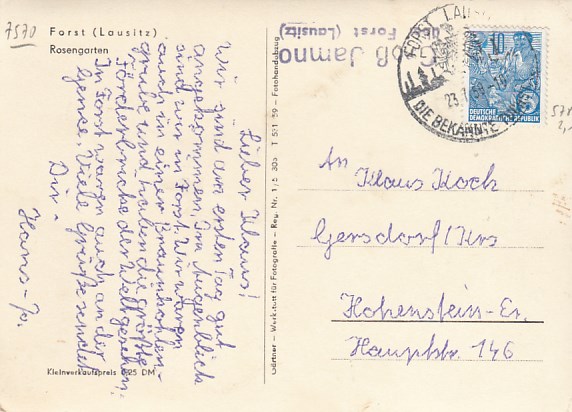 7570
Forst (Lausitz)
Rosengarten
Lieber Klaus!
Wir sind am ersten Tag gut
angekommen. Im Augenblick
sind wir in Forst. Wir waren
auch in einer Braunkohlen-
grube und haben die größte
Förderbrücke der Welt gesehen.
In Forst waren auch an der
Viele Grüße sendet
Dir
Hans-Jo.
Kleinverkaufspreis 0,25 DM
Gärtner – Werkstatt für Fotografie – Reg. Nr. 1/5 305 T 521 59 – Fotohandabzug
Groß Jamno
über Forst (Lausitz)
FORST LAUSITZ
23.7.
DIE BEKANNTE
10
DEUTSCHE
DEMOKRATISCHE REPUBLIK
An Klaus Koch
Gersdorf/Krs
Hohenstein-Er.
Hauptstr. 146